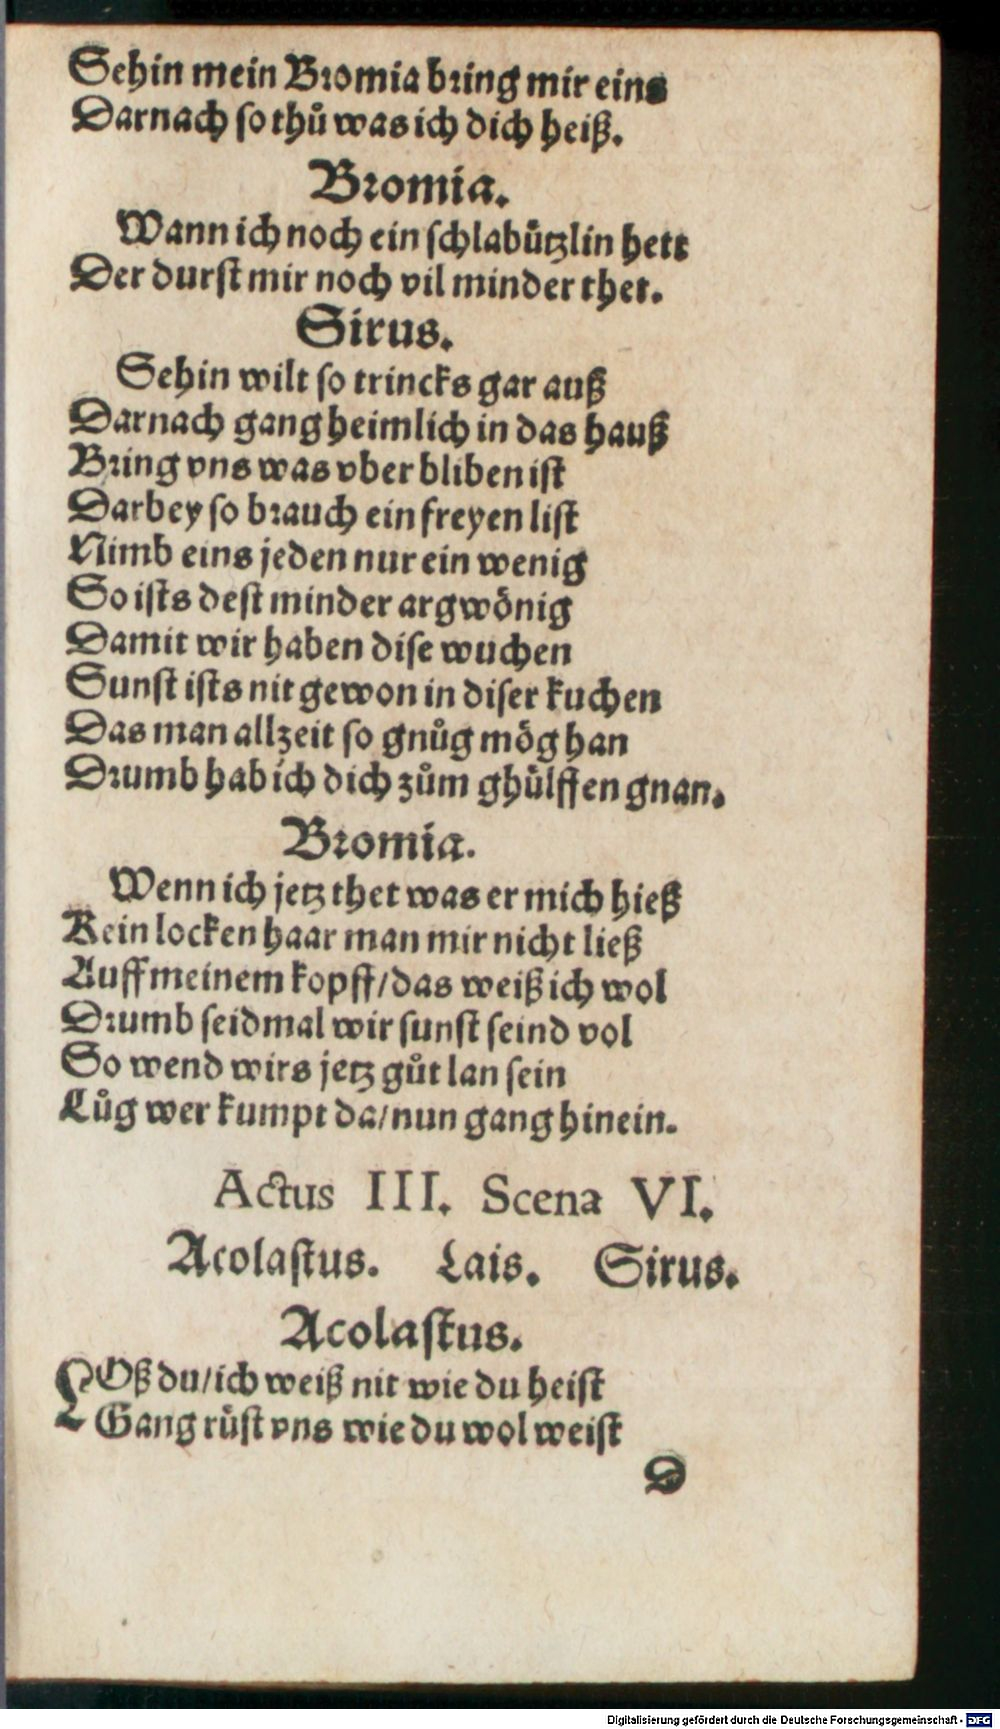 Sehin mein Bromia bring mir eins
Darnach so thů was ich dich heiß.
Bromia.
Wann ich noch ein schlabützlin hett
Der durst mir noch vil minder thet.
Sirus.
Sehin wilt so trincks gar auß
Darnach gang heimlich in das hauß
Bring vns was vber bliben ist
Darbey so brauch ein freyen list
Nimb eins jeden nur ein wenig
So ists dest minder argwönig
Damit wir haben dise wuchen
Sunst ists nit gewon in diser kuchen
Das man allzeit so gnůg mög han
Drumb hab ich dich zům ghülffen gnan.
Bromia.
Wenn ich jetz thet was er mich hieß
Kein locken haar man mir nicht ließ
Auff meinem kopff/das weiß ich wol
Drumb seidmal wir sunst seind vol
So wend wirs jetz gůt lan sein
Lůg wer kumpt da/nun gang hinein.
Actus III. Scena VI.
Acolastus. Lais. Sirus.
Acolastus.
LOß du/ich weiß nit wie du heist
Gang rüst vns wie du wol weist
D
Digitalisierung gefördert durch die Deutsche Forschungsgemeinschaft - DFG